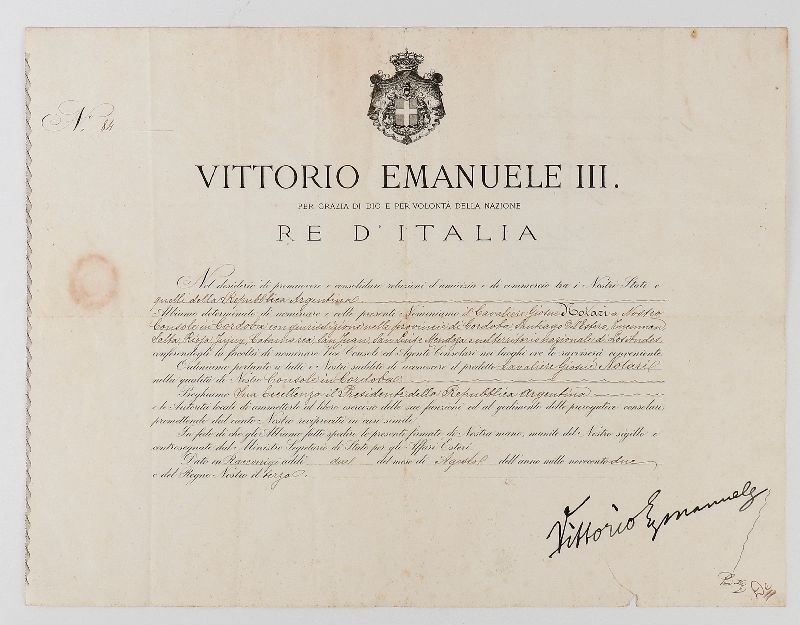 N. 84
VITTORIO EMANUELE III.
PER GRAZIA DI DIO E PER VOLONTÀ DELLA NAZIONE
RE D'ITALIA
Nel desiderio di promuovere e consolidare relazioni d'amicizia e di commercio tra i Nostri Stati e
quelli della Repubblica Argentina
Abbiamo determinato di nominare e colle presenti Nominiamo il Cavaliere Notari a Nostro
Console in Cordoba con giurisdizione nelle provincie di Cordoba, Santiago Del Estero, Tucuman
Salta, Rioja, Jujuy, Catamarca, San Juan, San Luis e Mendoza e nel territorio nazionale di Los Andes
comprendogli la facoltà di nominare Vice Consoli ed Agenti Consolari nei luoghi ove lo ravviserà conveniente.
Ordiniamo pertanto a tutti i Nostri sudditi di riconoscere il predetto Cavaliere Notari
nella qualità di Nostro Console in Cordoba
Preghiamo Sua Eccellenza il Presidente della Repubblica Argentina
e le Autorità locali di ammetterlo al libero esercizio delle sue funzioni ed al godimento delle prerogative consolari
promettendo dal canto Nostro reciprocità in casi simili.
In fede di che gli Abbiamo fatto spedire le presenti firmate di Nostra mano, munite del Nostro sigillo e
contrassegnate dal Ministro Segretario di Stato per gli Affari Esteri.
Dato in Racconigi addì due del mese di Agosto dell'anno mille novecento due
e del Regno Nostro il terzo.
Vittorio Emanuele